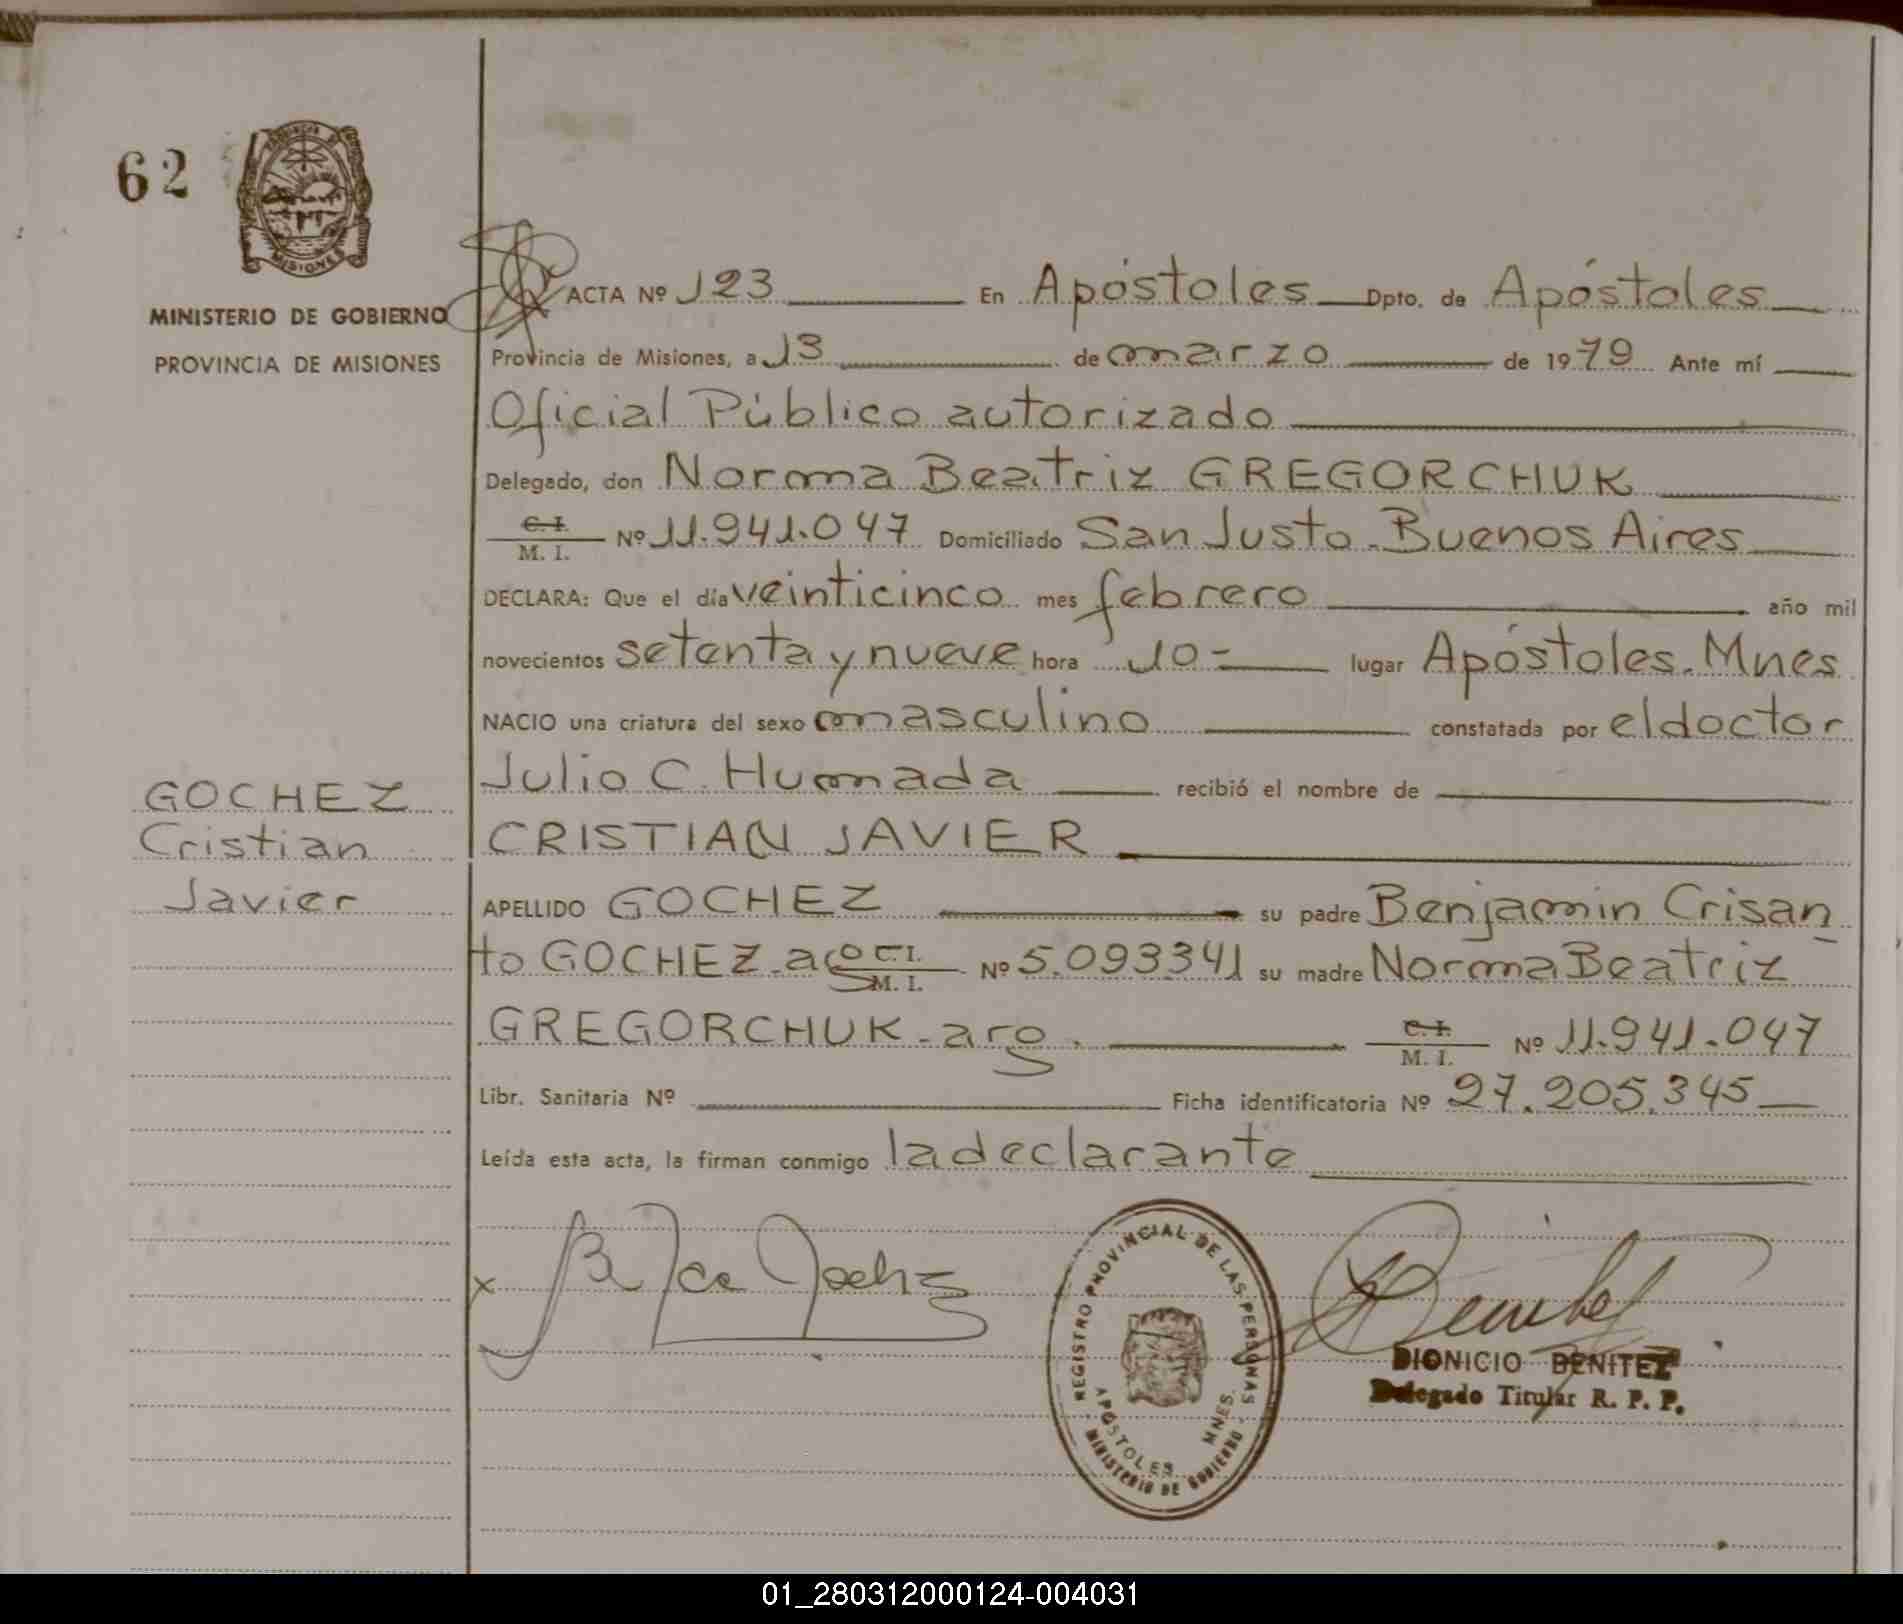 62
PROVINCIA DE
MISIONES
MINISTERIO DE GOBIERNO
PROVINCIA DE MISIONES
ACTA Nº 123 En Apóstoles Dpto. de Apóstoles
Provincia de Misiones, a 13 de marzo de 1979 Ante mí
Oficial Público autorizado
Delegado, don Norma Beatriz GREGORCHUK
C. I.
M. I. Nº 11.941.047 Domiciliado San Justo - Buenos Aires
DECLARA: Que el día veinticinco mes febrero año mil
novecientos setenta y nueve hora 10- lugar Apóstoles. Mnes
NACIO una criatura del sexo masculino constatada por el doctor
Julio C. Humada recibió el nombre de
GOCHEZ
Cristian
Javier
CRISTIAN JAVIER
APELLIDO GOCHEZ su padre Benjamin Crisan
to GOCHEZ - C. I.
M. I. Nº 5.093341 su madre Norma Beatriz
GREGORCHUK - arg. C. I.
M. I. Nº 11.941.047
Libr. Sanitaria Nº Ficha identificatoria Nº 27.205.345
Leída esta acta, la firman conmigo la declarante
x
REGISTRO PROVINCIAL DE LAS PERSONAS
APOSTOLES MNES.
MINISTERIO DE GOBIERNO
DIONICIO BENITEZ
Delegado Titular R. P. P.
01_280312000124-004031